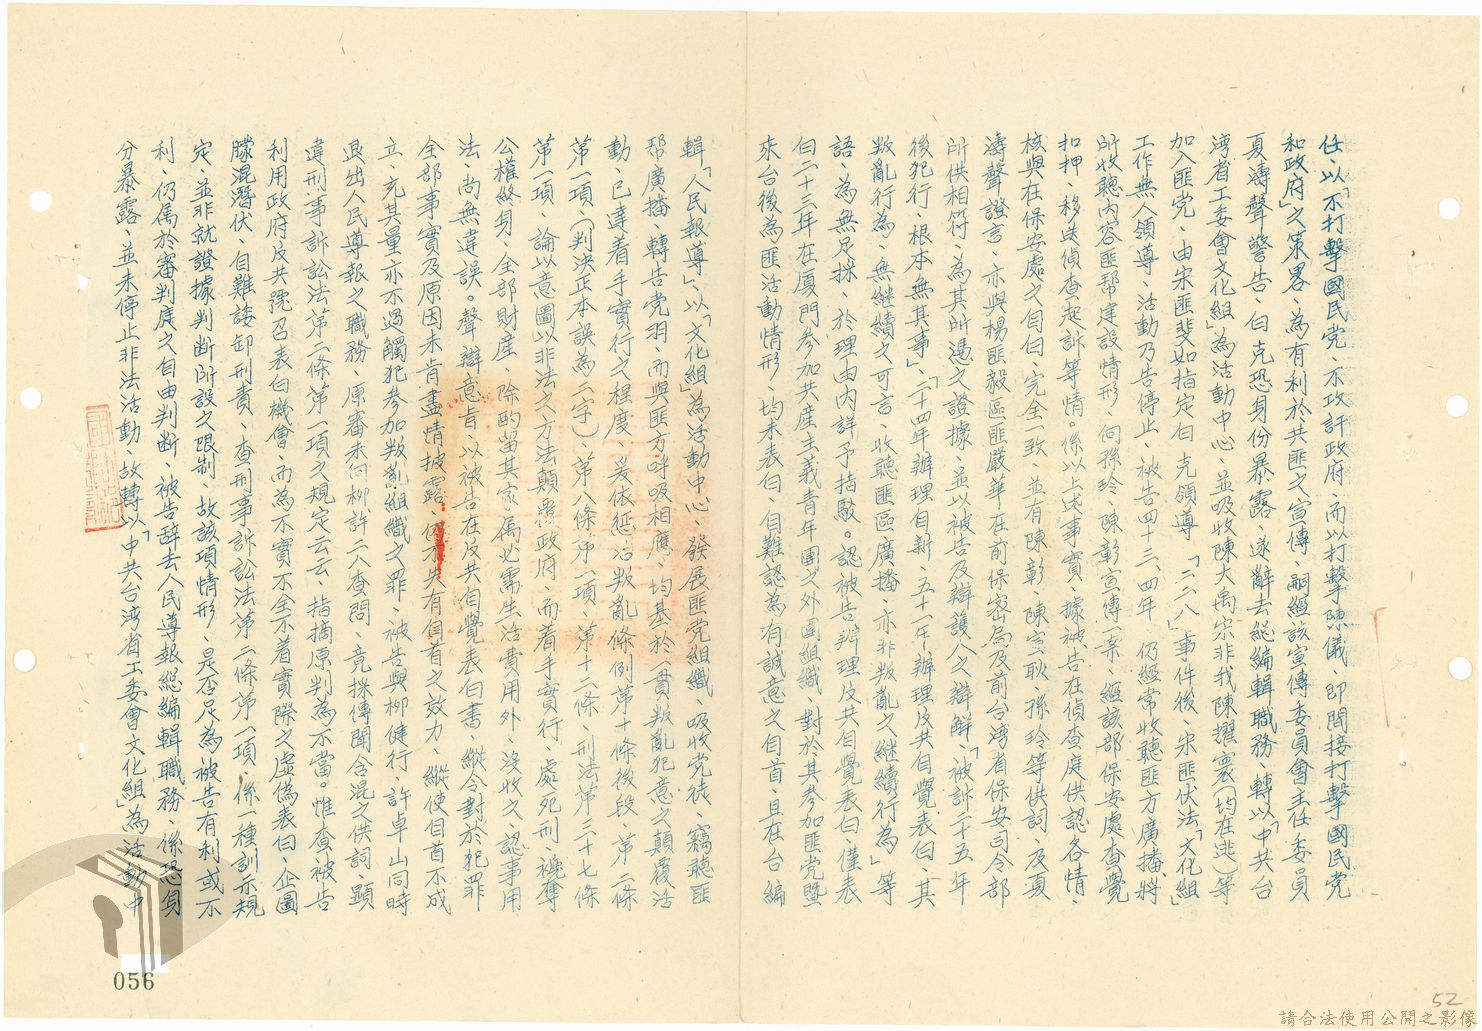 任、以不打擊國民党、不攻訐政府、而以打擊陳儀、即間接打擊國民党
和政府」之策畧、為有利於共匪之宣傳、嗣經該宣傳委員會主任委員
夏濤聲警告、白克恐身份暴露、遂辭去總編輯職務、轉以「中共台
湾省工委會文化組」為活動中心、並吸收陳大禹宋非我陳耀寰(均在逃)等
加入匪党、由宋匪斐如指定白克領導、「二二八」事件後、宋匪伏法「文化組」
工作無人領導、活動乃告停止、被告四十三、四年、仍經常收聽匪方廣播、將
所收聽內容匪幫建設情形、向孫玲、陳彰宣傳一案、經該部保安處查覺
扣押、移送偵查起訴等情。係以上述事實、據被告在偵查庭供認各情、
核與在保安處之自白、完全一致、並有陳彰、陳宣耿、孫玲等供詞、及夏
濤聲證言、亦與楊匪毅區匪嚴華在前保密局及前台湾省保安司令部
所供相符、為其所憑之證據、並以被告及辯護人之辯解、「被訴二十五年
後犯行、根本無其事」、「二十四年辦理自新、五十一年辦理反共自覺表白、其
叛亂行為、無繼續之可言、收聽匪區廣播、亦非叛亂之継續行為」等
語、為無足採、於理由內詳予指駁。認被告辦理反共自覺表白、僅表
白二十三年在厦門參加共產主義青年團之外圍組織、對於其參加匪党暨
來台後為匪活動情形、均未表白、自難認為有誠意之自首、且在台編
輯「人民報導」、以「文化組」為活動中心、發展匪党組織、吸收党徒、竊聽匪
帮廣播、轉告党羽、而與匪方呼吸相應、均基於一貫叛亂犯意之顛覆活
動、已達着手實行之程度、爰依惩治叛亂條例第十條後段、第二條
第一項、(判決正本誤為二字)、第八條第一項、第十二條、刑法第三十七條
第一項、論以意圖以非法之方法顛覆政府、而着手實行、處死刑、褫奪
公權終身、全部財產、除酌留其家屬必需生活費用外、沒收之、認事用
法尚無違誤。聲辯意旨、以被告在反共自覺表白書、縱令對於犯罪
全部事實及原因未肯盡情披露、仍不失有自首之效力、縱使自首不成
立、充其量亦不過觸犯參加叛亂組織之罪、被告與柳健行、許卓山同時
退出人民導報之職務、原審未向柳許二人查問、竟採傳聞含混之供詞、顯
違刑事訴訟法第二條第一項之規定云云、指摘原判為不當。惟查被告
利用政府反共號召表白機會、而為不實不全不着實際之虛偽表白、企圖
矇混潛伏、自難諉卸刑責、查刑事訴訟法第二條第一項、係一種訓示規
定、並非就證據判断所設之限制、故該項情形、是否足為被告有利或不
利、仍属於審判庭之自由判断、被告辞去人民導報總編輯職務、係恐身
分暴露、並未停止非法活動、故轉以「中共台湾省工委會文化組」為活動中
056
52
請合法使用公開之影像